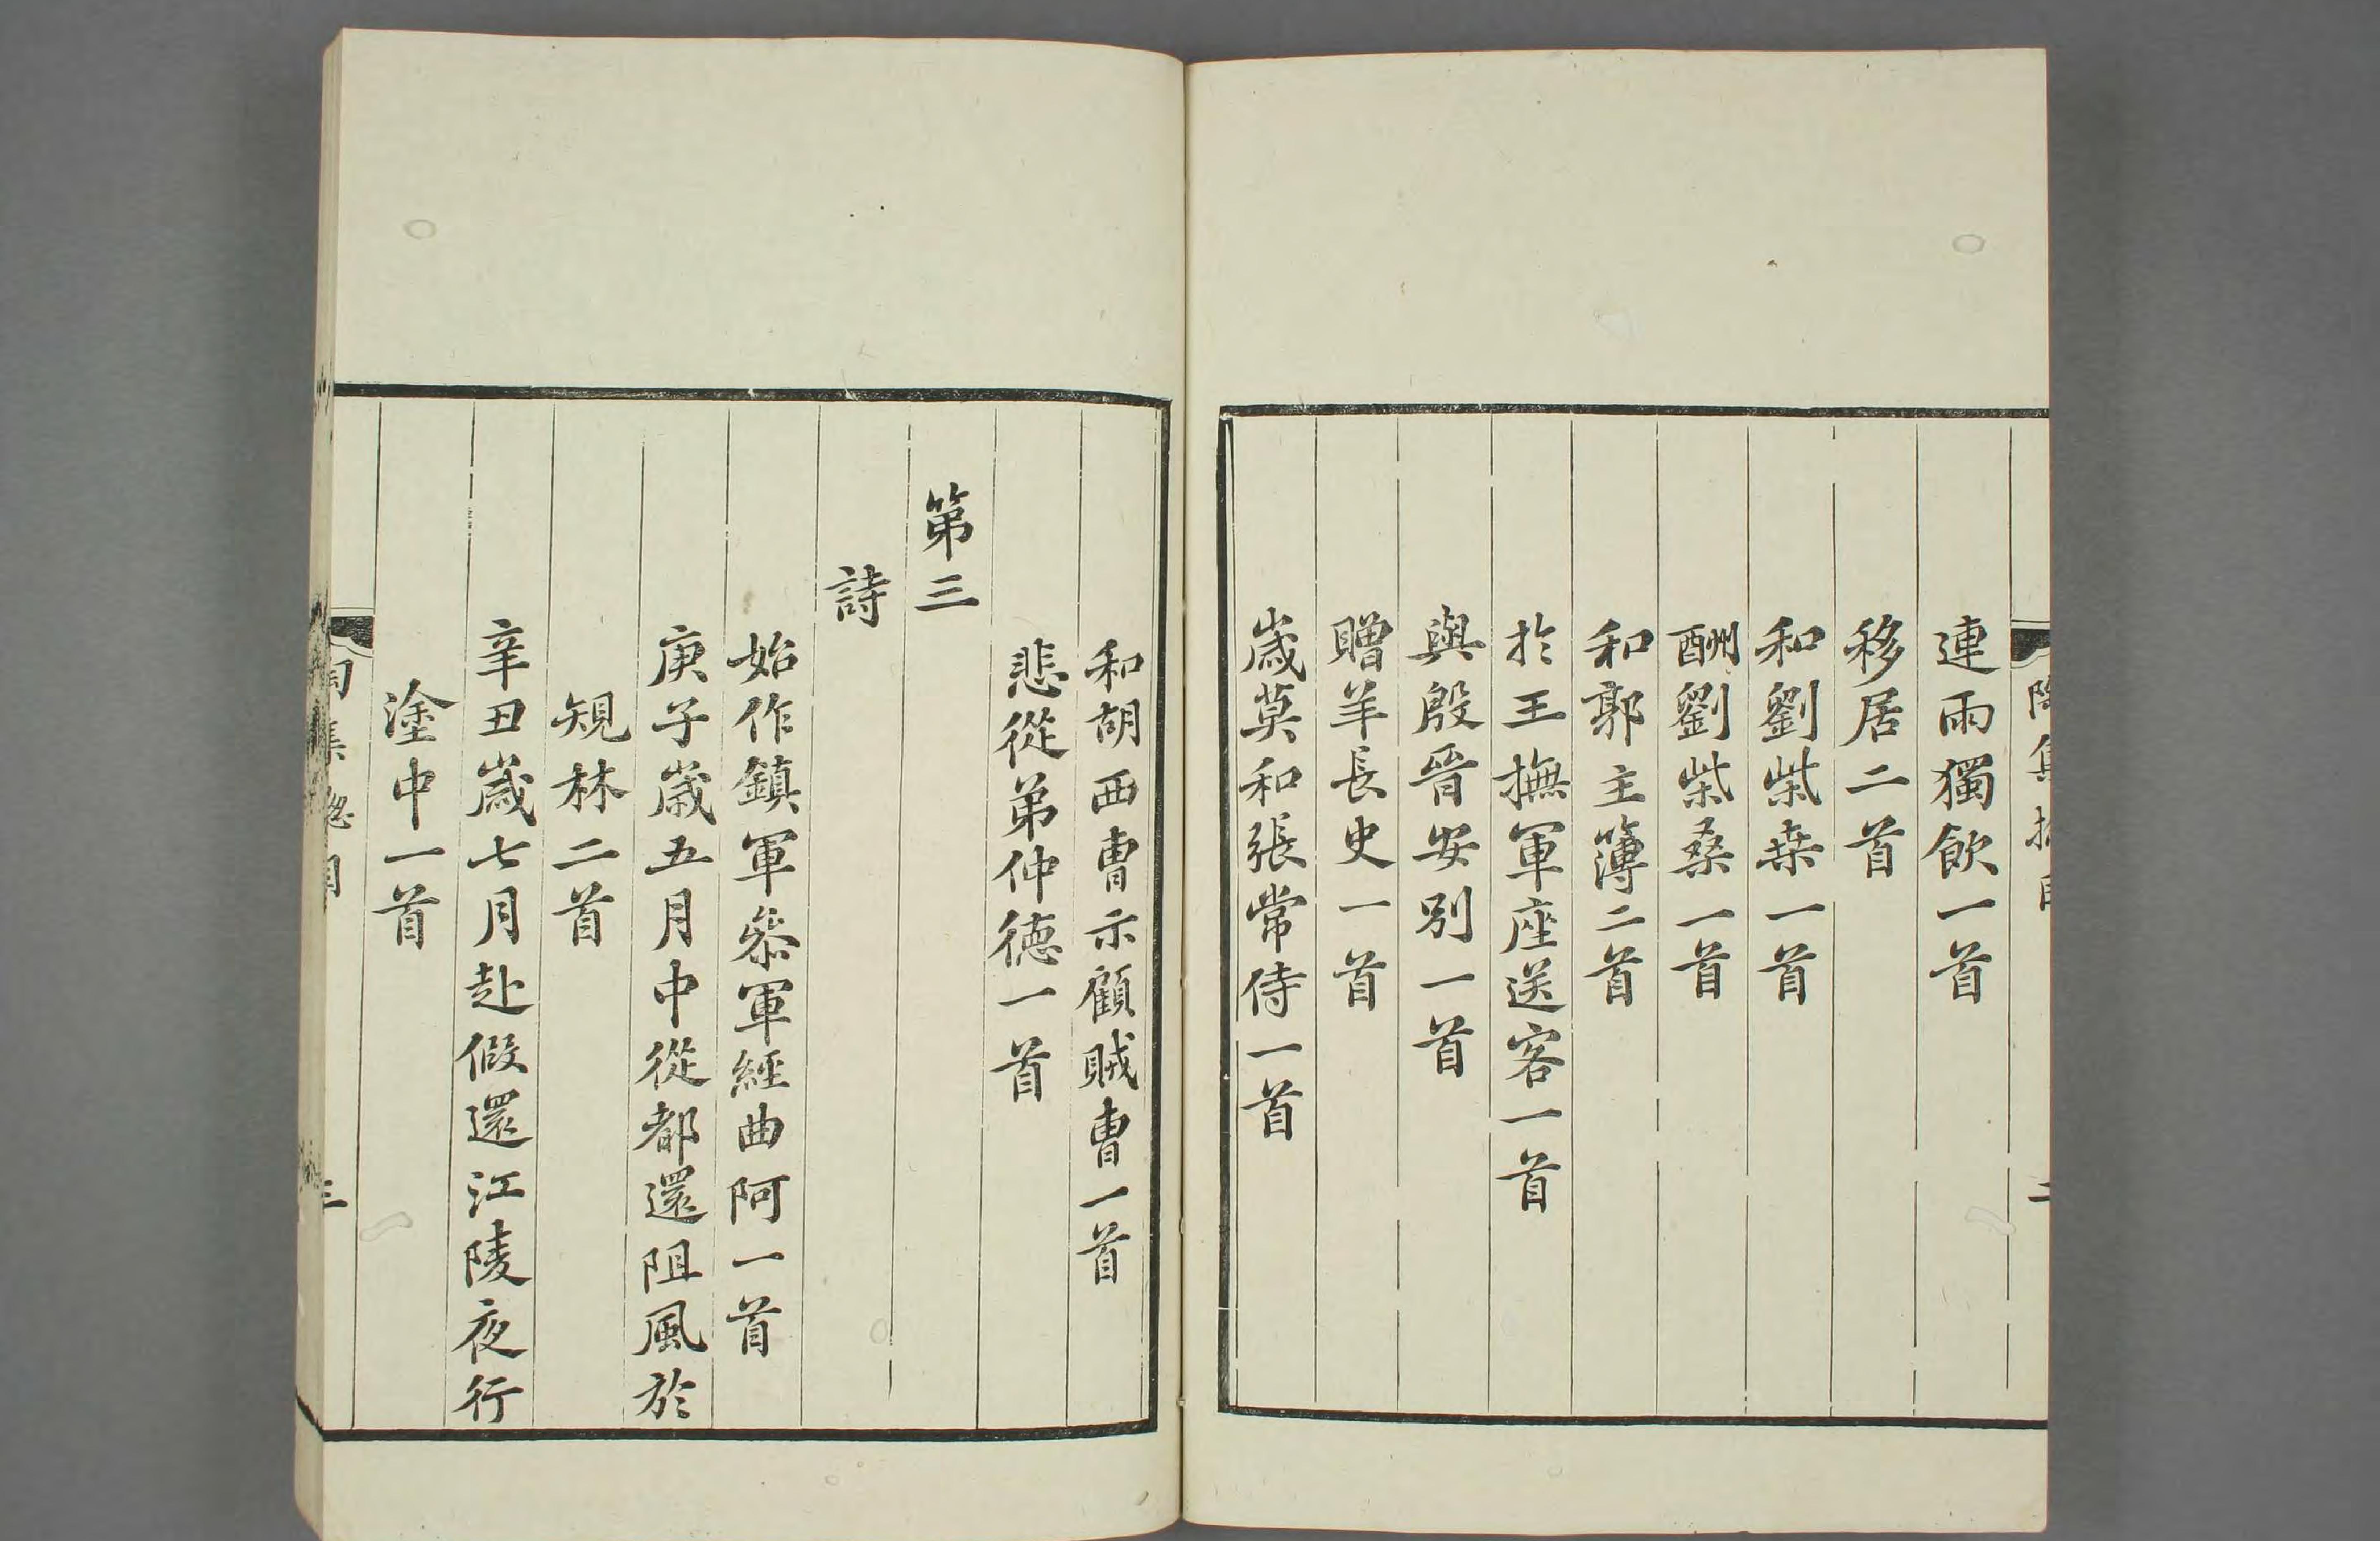 連雨獨飲一首
移居二首
和劉柴桒一首
酬劉柴桑一首
和郭主簿二首
於王撫軍座送客一首
與殷晉安别一首
贈羊長史一首
歲莫和張常侍一首
和胡西曹示顧賊曹一首
悲從弟仲德一首
第三
詩
始作鎮軍叅軍經曲阿一首
庚子歲五月中從都還阻風於
規林二首
辛丑歲七月赴假還江陵夜行
塗中一首
陶集總目
三